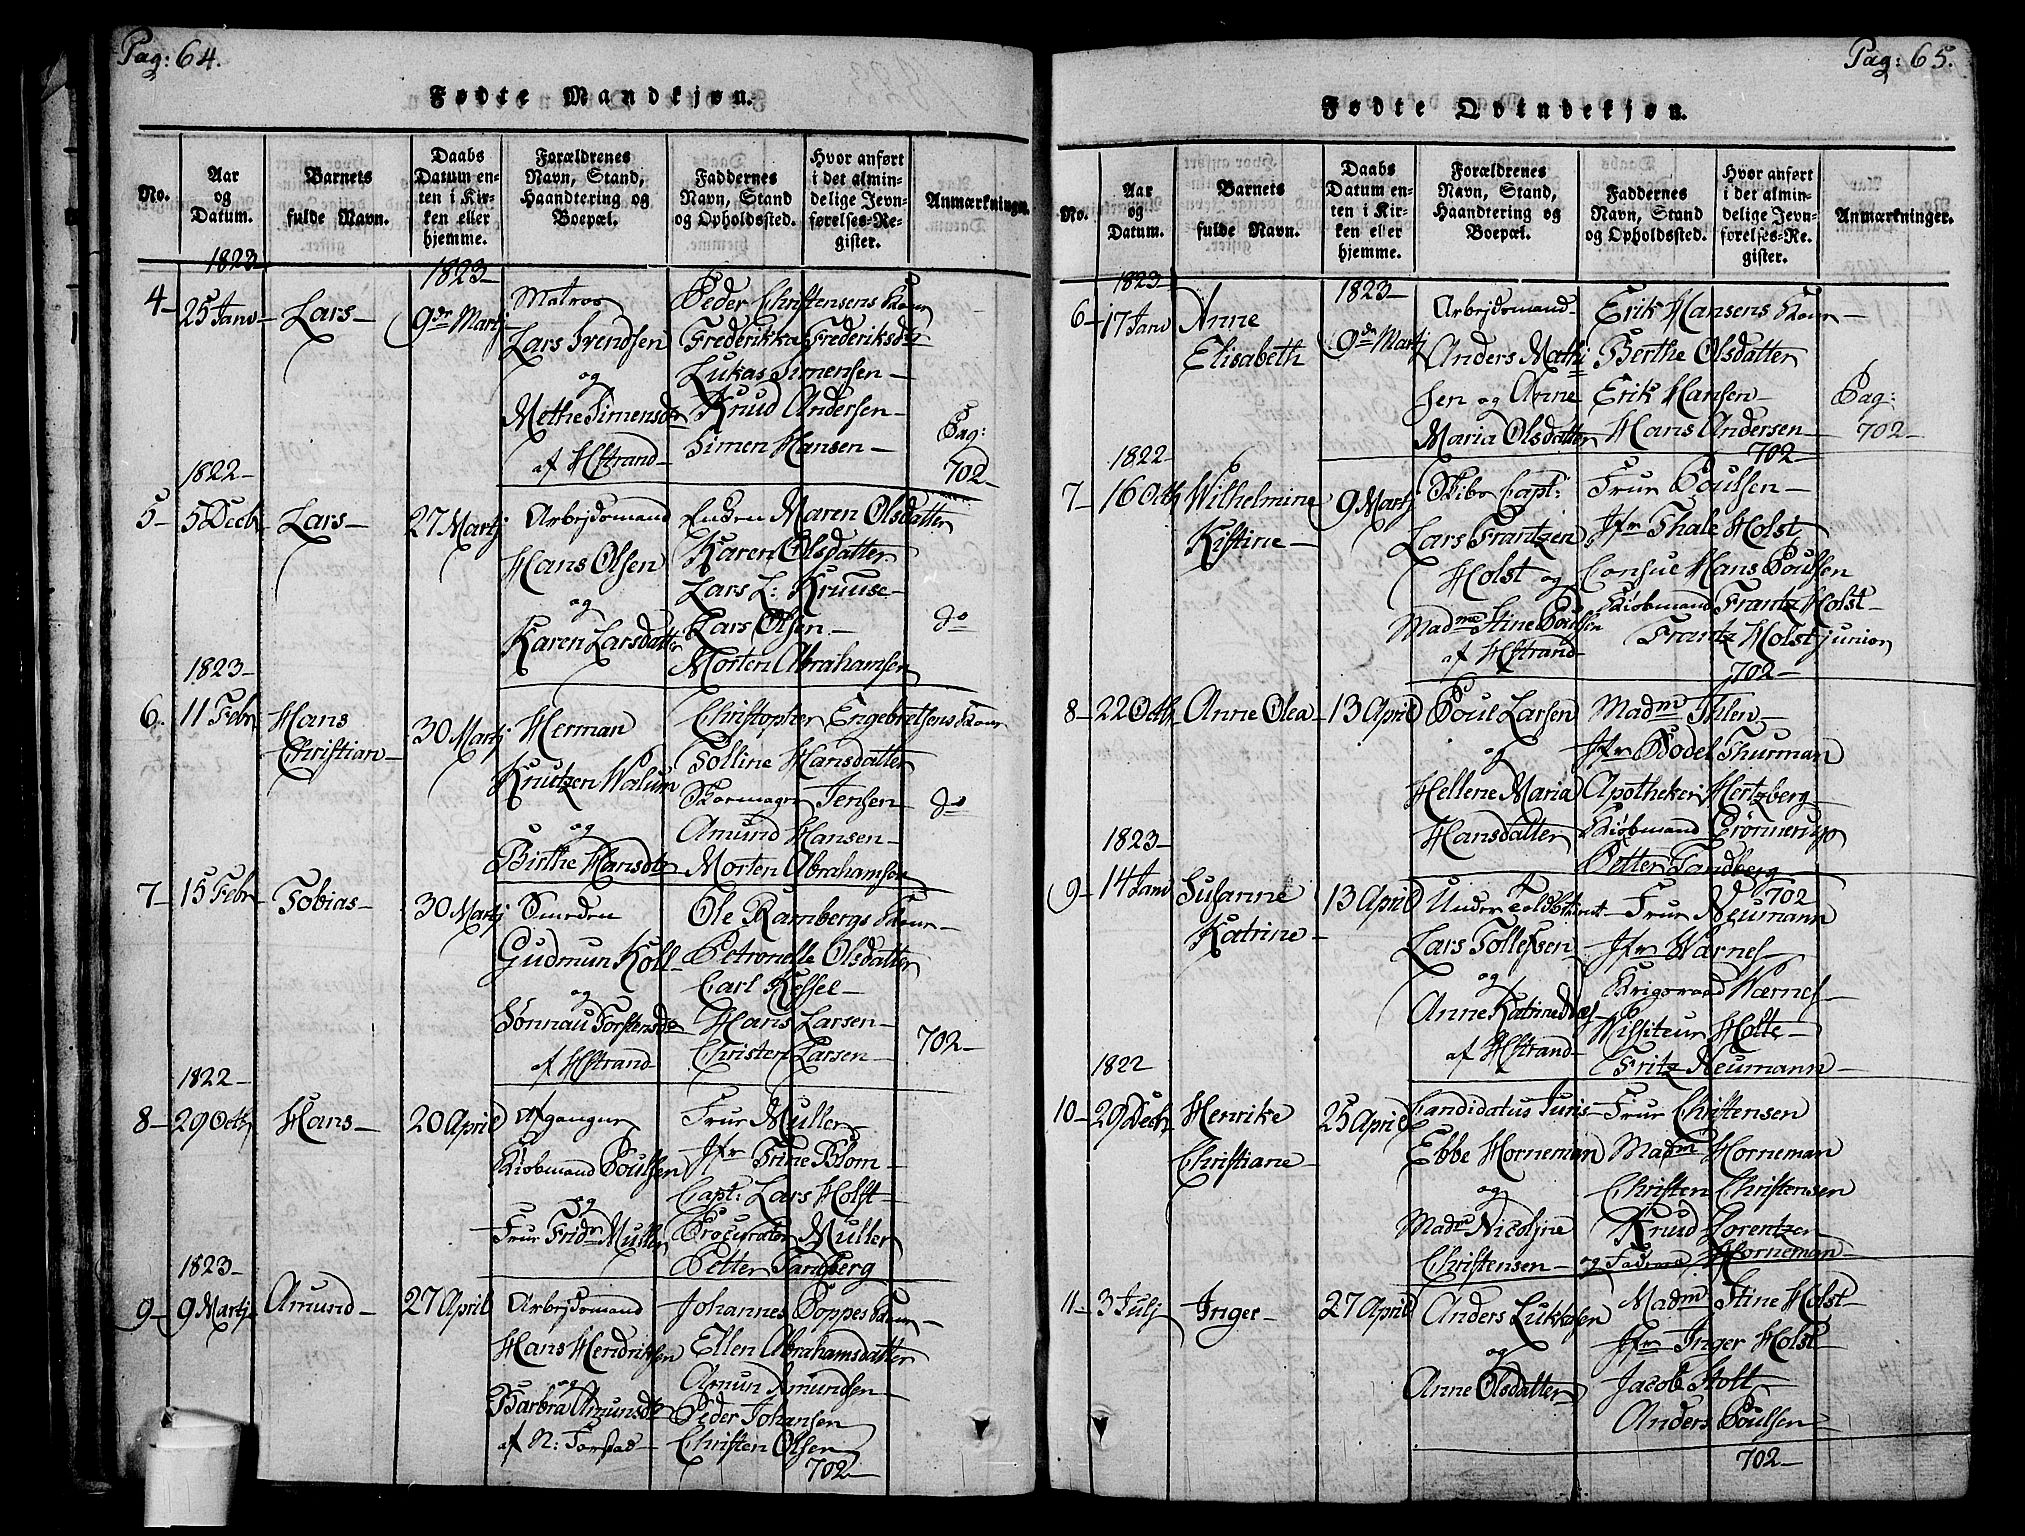 Pag: 64.
Fødte Mandkjøn.
No.
Aar og Datum.
Barnets fulde Navn.
Daabs Datum enten i Kirken eller hjemme.
Forældrenes Navn, Stand, Haandtering og Boepæl.
Faddernes Navn, Stand og Opholdssted.
Hvor anført i det almindelige Jevnførelses-Register.
Anmærkninger.
1823
1823
4-
25 Janv-
Lars-
9de Martj
Matros
Lars Svendsen
og
Methe Simensdr
af Hstrand-
Peder Christensens Kone
Frederikka Frederiksdtr
Lukas Simensen-
Knud Andersen-
Simen Hansen-
Pag:
702-
1822-
5-
5 Decbr
Lars-
27 Martj
Arbejdsmand
Hans Olsen
og
Karen Larsdatter
Enken Maren Olsdatter
Karen Olsdatter
Lars L: Kruuse-
Lars Olsen-
Morten Abrahamsen
do
1823-
6.
11 Febr
Hans
Christian-
30 Martj
Herman
Knutzen Walum
og
Birthe Hansdtr
Christopher Engebretsens Kone
Golline Hansdatter
Skomager Jensen-
Amund Hansen-
Morten Abrahamsen
do
7-
15 Febr
Tobias-
30 Martj
Smeden
Gudmun Koll-
og
Sønnau Torstensdr
af Hstrand
Ole Rambergs Kone-
Petronelle Olsdatter
Carl Kessel-
Hans Larsen-
Christen Larsen-
702-
1822-
8-
29 Octb
Hans-
20 April
Afgangne
Kiøbmand Poulsen
og
Frue Fridr Muller
Frue Muller
Jfr Trine Blom-
Capt: Lars Holst-
Procurator Muller
Petter Tandberg
1823-
9-
9 Martj
Amund-
27 April
Arbejdsmand
Hans Hendriksen
og
Barbra Amundsdr
af N: Torstad-
Johannes Poppes Kone-
Ellen Abrahamsdatter
Amun Amundsen-
Peder Johansen
Christen Olsen
702-
Pag: 65.
Fødte Qvindekjøn.
No.
Aar og Datum.
Barnets fulde Navn.
Daabs Datum enten i Kirken eller hjemme.
Forældrenes Navn, Stand, Haandtering og Boepæl.
Faddernes Navn, Stand og Opholdssted.
Hvor anført i det almindelige Jevnførelses-Register.
Anmærkninger.
1823
1823-
6-
17 Janv
Anne
Elisabeth
9de Martj
Arbejdsmand-
Anders Mathi
sen og Anne
Maria Olsdatter
Erik Hansens Kone-
Berthe Olsdatter
Erik Hansen-
Hans Andersen-
702-
Pag:
702-
1822-
7-
16 Octb
Wilhelmine
Kistine-
9 Martj
Skibs Capt:
Lars Frantzen
Holst og
Madme Stine Poulsen
af Hstrand-
Frue Poulsen-
Jfr Thale Holst
Consul Hans Poulsen
Kiøbmand Frantz Holst-
Frantz Holst junior
702-
8-
22 Octb
Anne Olea-
13 April
Poul Larsen
og
Hellene Maria
Hansdatter
Madm Ihlen-
Jfr Bodel Thurman
Apotheker Hertzberg-
Kiøbmand Grønnerup
Petter Tandberg
702
1823-
9-
14 Janv
Susanne
Katrine-
13 April
Under Toldbetient
Lars Tollefsen
og
Anne Katrine
af Hstrand-
Frue Neumann
Jfr Wærnes-
Krigsraad Wærnes
Wissiteur Holte-
Fritz Neumann-
1822
10-
29 Decb
Henrike
Christiane-
25 April
Candidatus Juris-
Ebbe Horneman
og
Madm Nicolsine
Christensen
Frue Christensen
Madm Horneman
Christen Christensen
Knud Lorentzen
og Faderen Horneman-
11-
3 Julj
Inger-
27 April
Anders Lukkesen
og
Anne Olsdatter
Madm Stine Holst-
Jfr Inger Holst-
Jacob Stolt-
Anders Poulsen-
702-